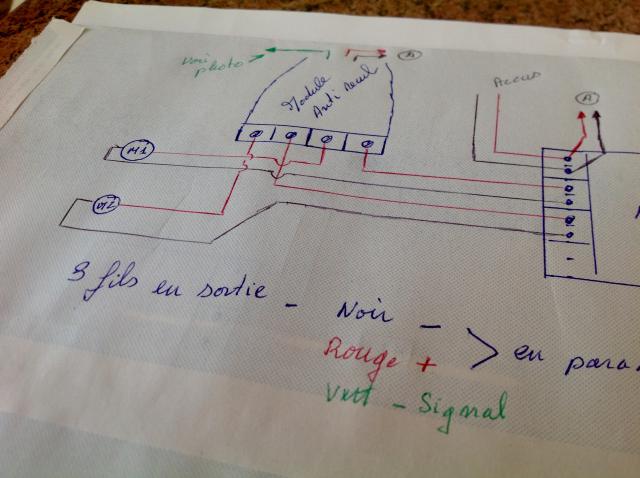 Voir photo
A
Module
Anti recul
Accus
A
M1
M2
3 fils en sortie - Noir -
Rouge +
> en para
Vert - Signal